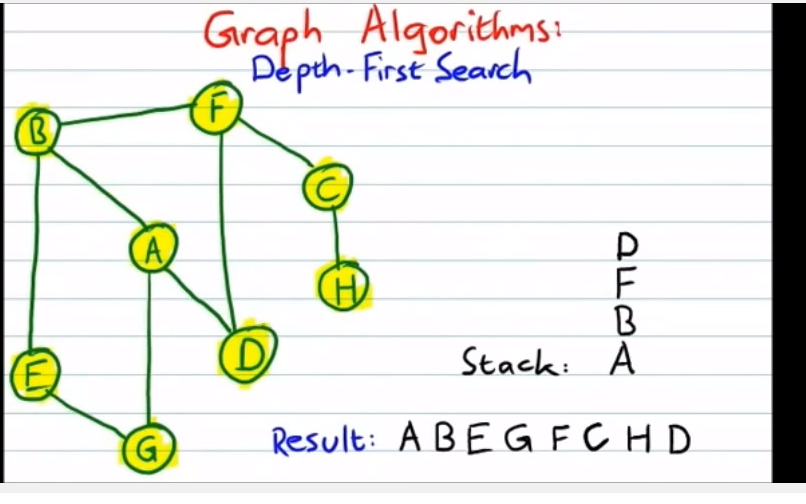 Graph Algorithms:
Depth-First Search
B
F
C
A
H
E
D
G
D
F
B
Stack: A
Result: A B E G F C H D